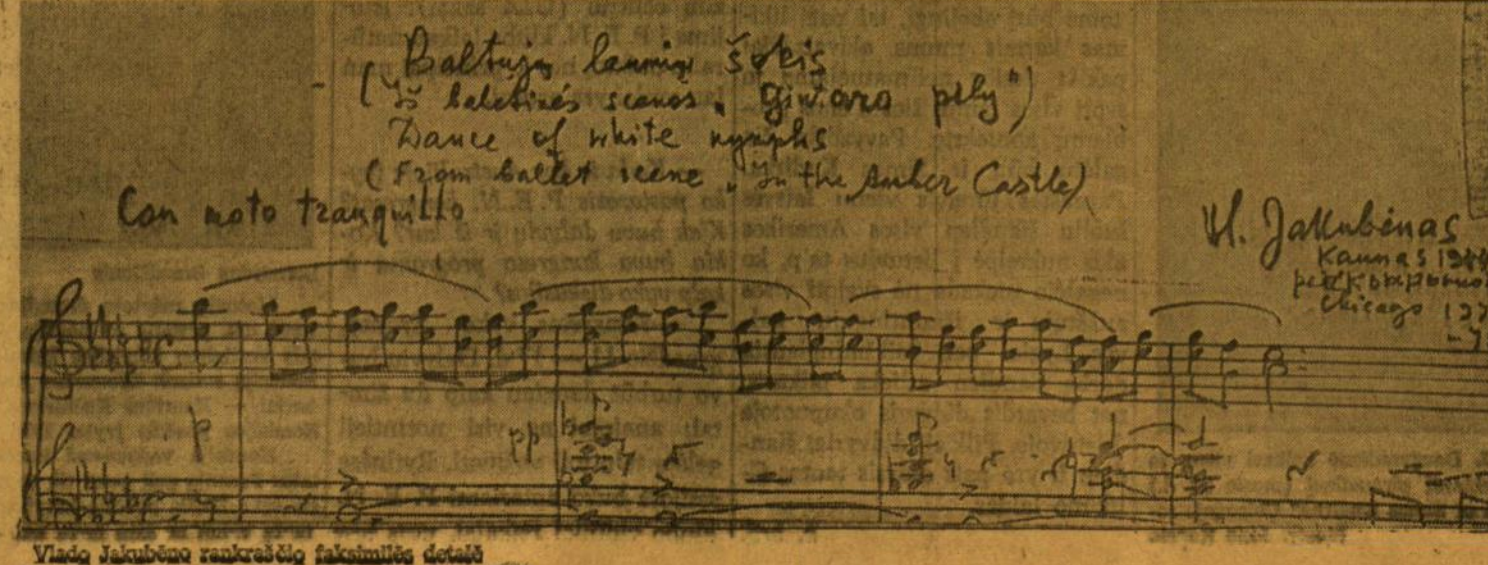 Baltųjų laumių šokis
(Iš baletinės scenos „Gintaro pily")
Dance of white nymphs
(From ballet scene „In the Amber Castle)
Con moto tranquillo
Vl. Jakubėnas
Kaunas
Chicago
p
pp
Vlado Jakubėno rankraščio faksimilės detalė